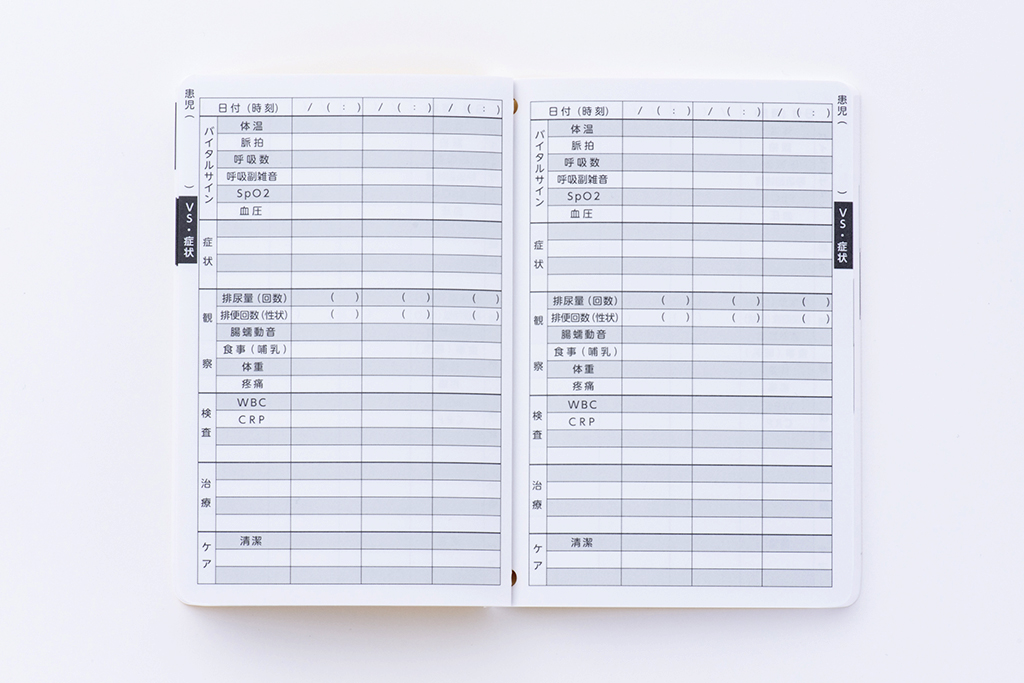 患児（　　）
VS・症状
日付（時刻）　/　(　:　)　/　(　:　)　/　(　:　)
バイタルサイン
体温
脈拍
呼吸数
呼吸副雑音
SpO2
血圧
症状
観察
排尿量（回数）　(　)　(　)　(　)
排便回数（性状）　(　)　(　)　(　)
腸蠕動音
食事（哺乳）
体重
疼痛
検査
WBC
CRP
治療
ケア
清潔
日付（時刻）　/　(　:　)　/　(　:　)　/　(　:　)
バイタルサイン
体温
脈拍
呼吸数
呼吸副雑音
SpO2
血圧
症状
観察
排尿量（回数）　(　)　(　)　(　)
排便回数（性状）　(　)　(　)　(　)
腸蠕動音
食事（哺乳）
体重
疼痛
検査
WBC
CRP
治療
ケア
清潔
患児（　　）
VS・症状